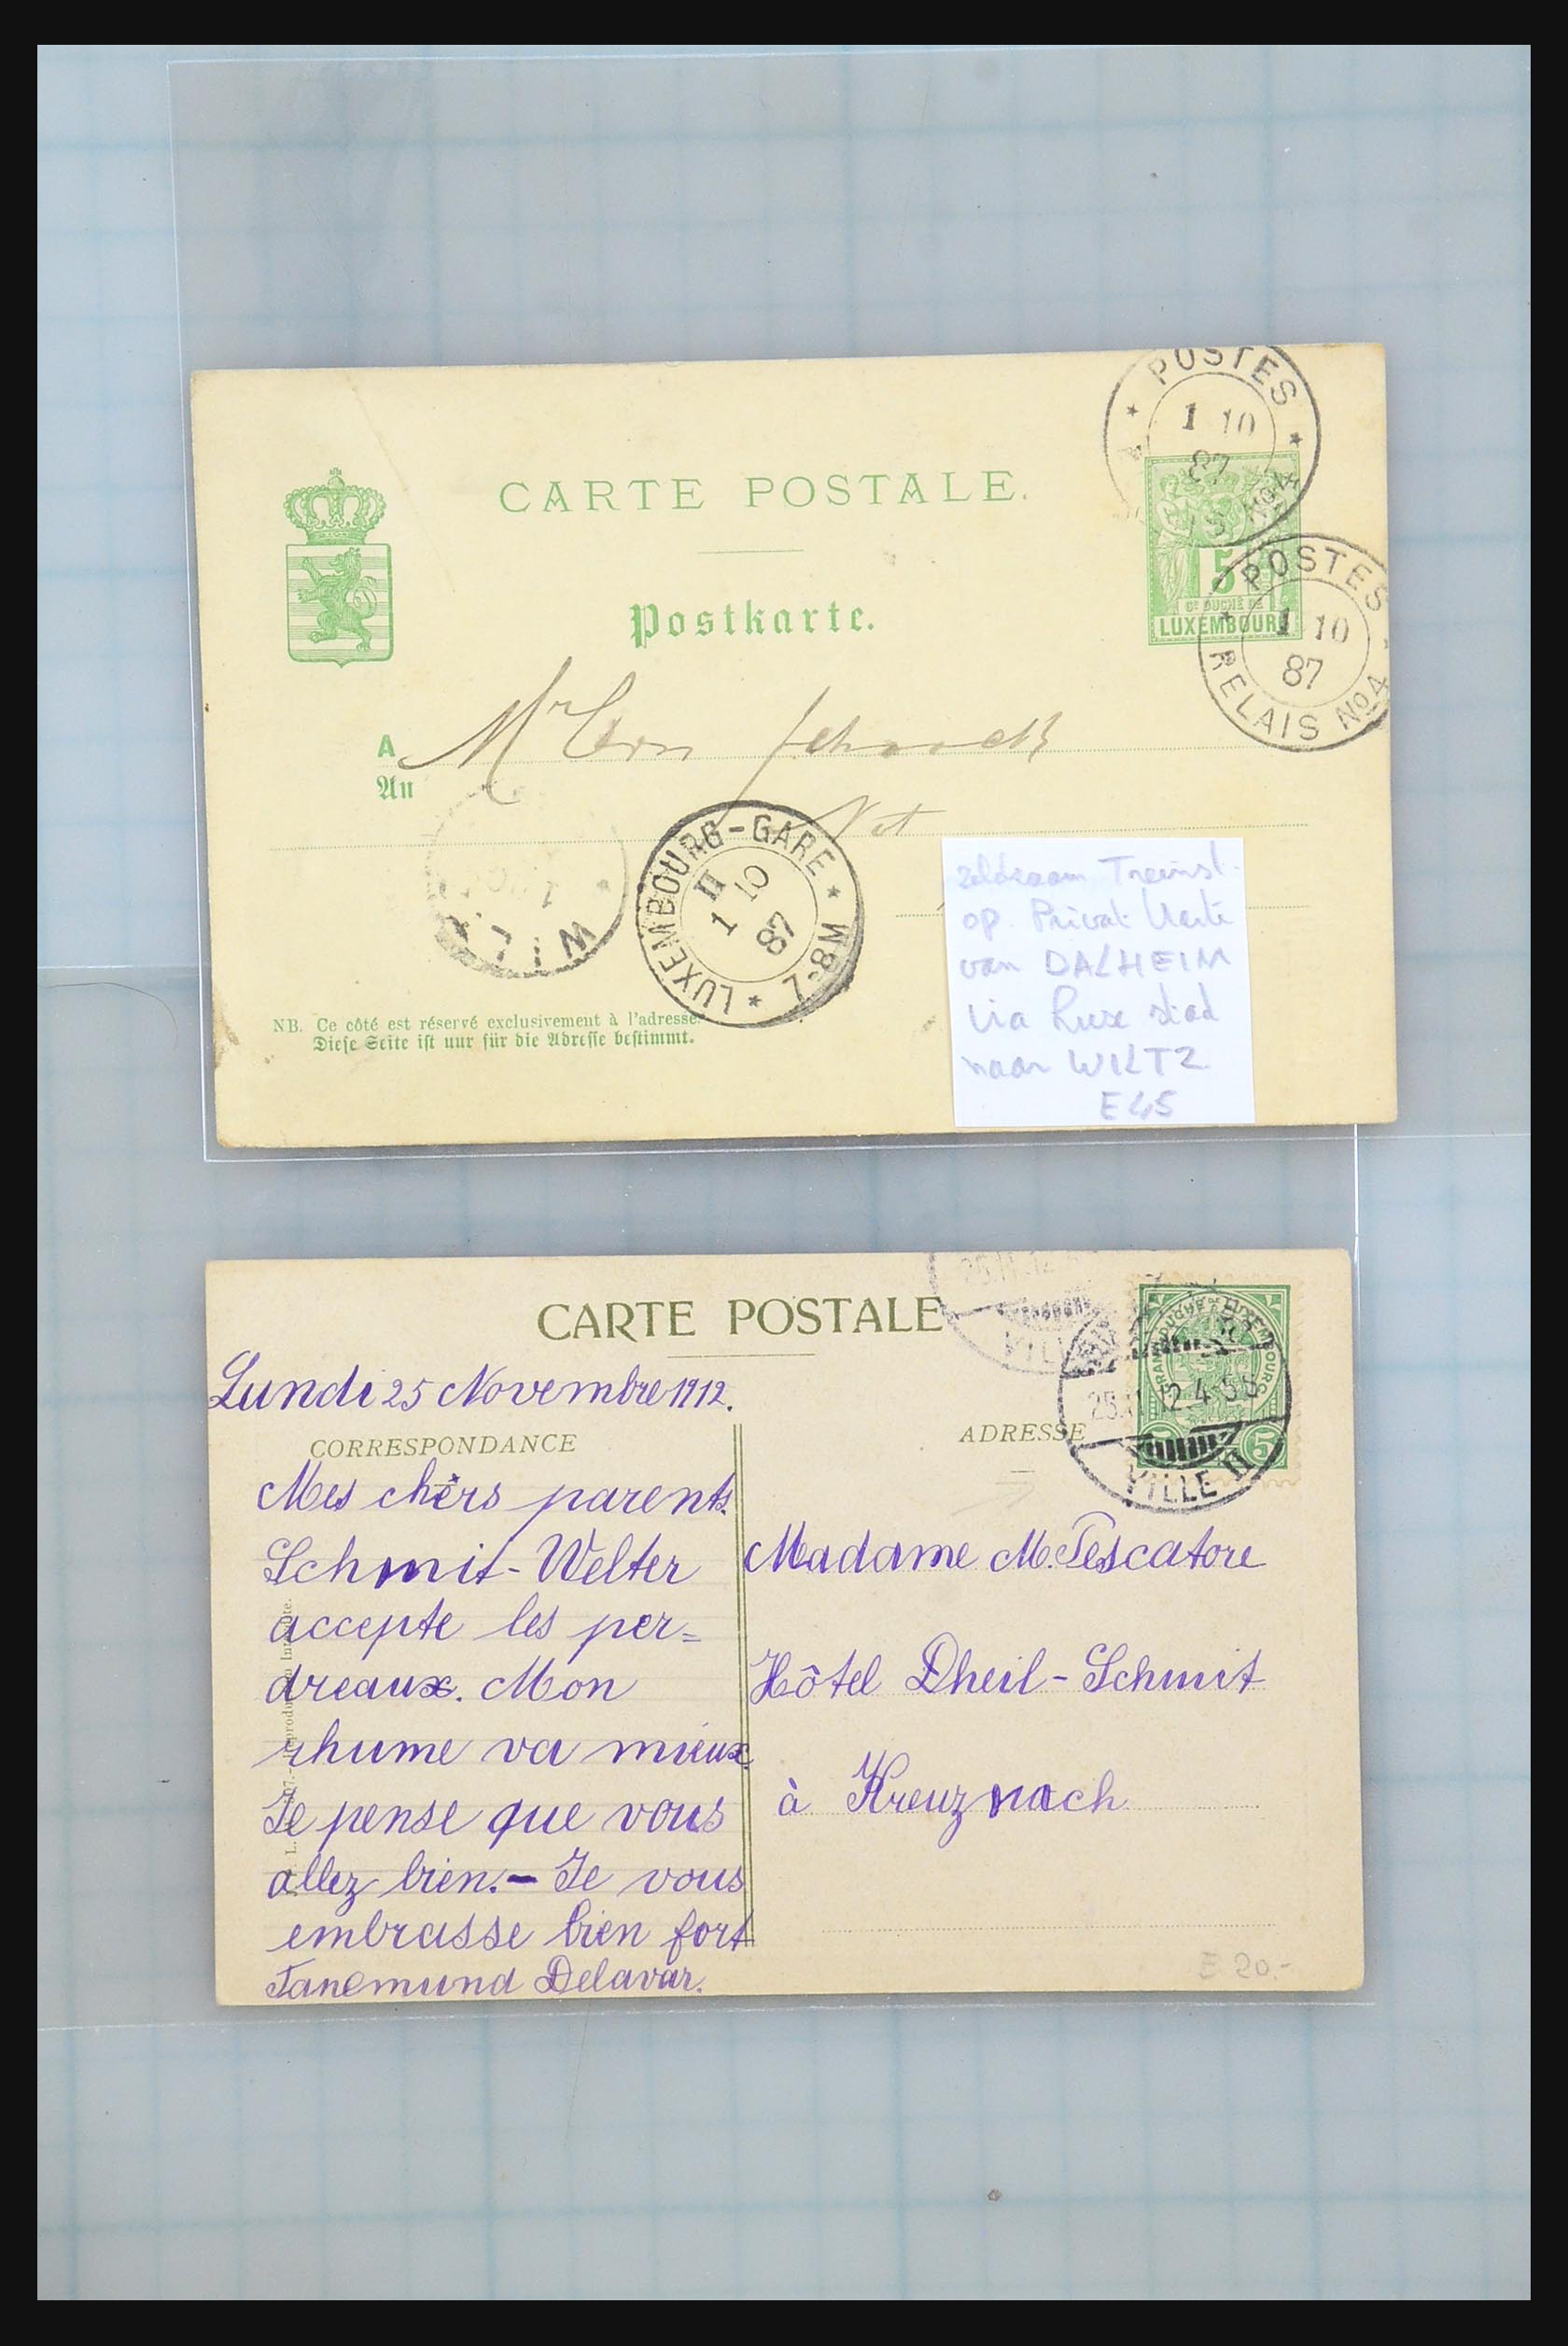 POSTES
1 10
87
No 4
CARTE POSTALE.
Postkarte.
5
Gd DUCHÉ DE
LUXEMBOURG
POSTES
1 10
87
RELAIS No 4
A Mr Schnack
An
Not
LUXEMBOURG-GARE * M8-7 *
II
1 10
87
WIL
zeldzaam Treinst.
op. Privat. Karte
van DALHEIM
via Luxe stad
naar WILTZ
E45
NB. Ce côté est réservé exclusivement à l'adresse.
Diese Seite ist nur für die Adresse bestimmt.
CARTE POSTALE
Lundi 25 Novembre 1912.
CORRESPONDANCE
ADRESSE
GRAND DUCHÉ DE LUXEMBOURG
5
25.11.12.4-5S
VILLE II
Mes chèrs parents.
Schmit-Welter
accepte les per=
dreaux. Mon
rhume va mieux.
Je pense que vous
allez bien.- Je vous
embrasse bien fort
Tanemund Delavar.
Madame M. Pescatore
Hôtel Dheil-Schmit
à Kreuznach
E 20.-